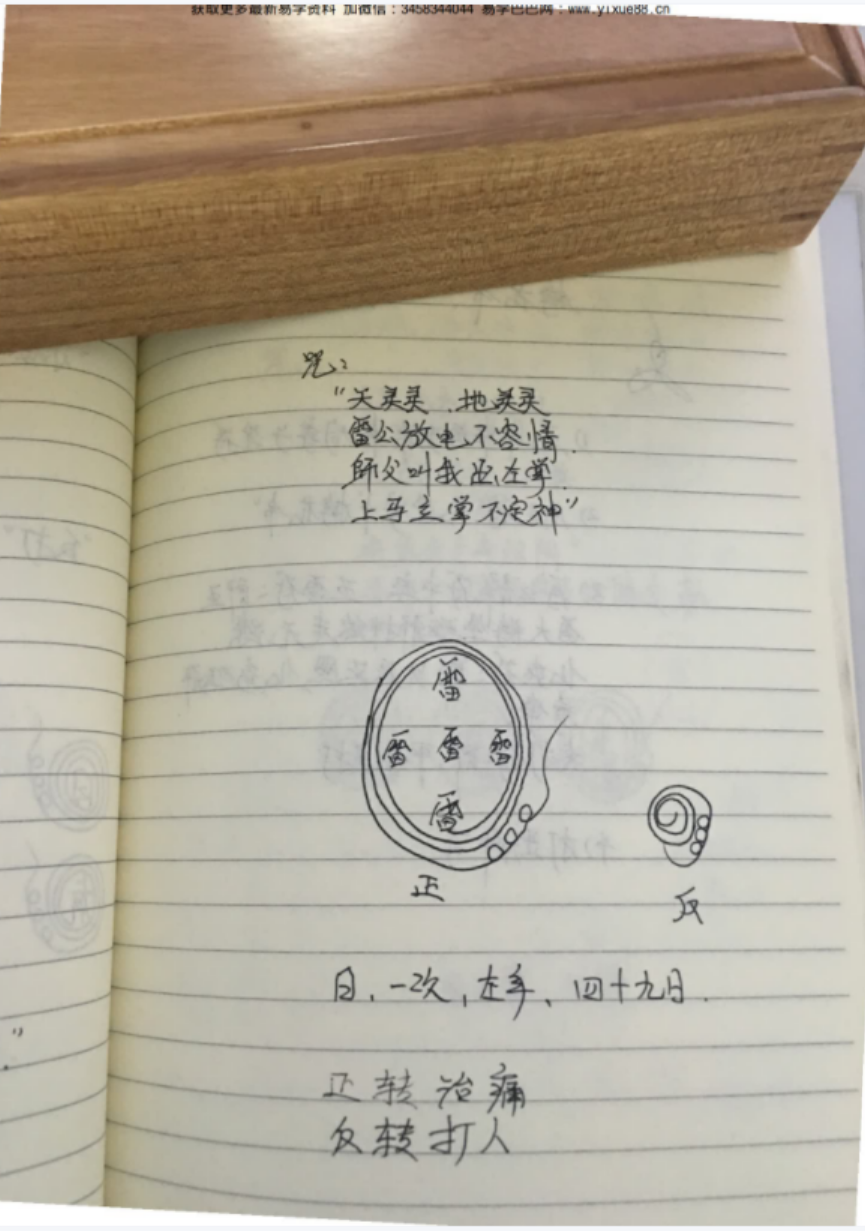 获取更多最新易学资料 加微信:3458344044 易学巴巴网:www.yixue88.cn
咒:
"天灵灵、地灵灵
雷公放电不容情.
師父叫我 左掌.
上 立掌不 神"
雷
雷 雷 雷
雷
正
反
日、一次,左手、四十九日.
正转治痛
反转打人